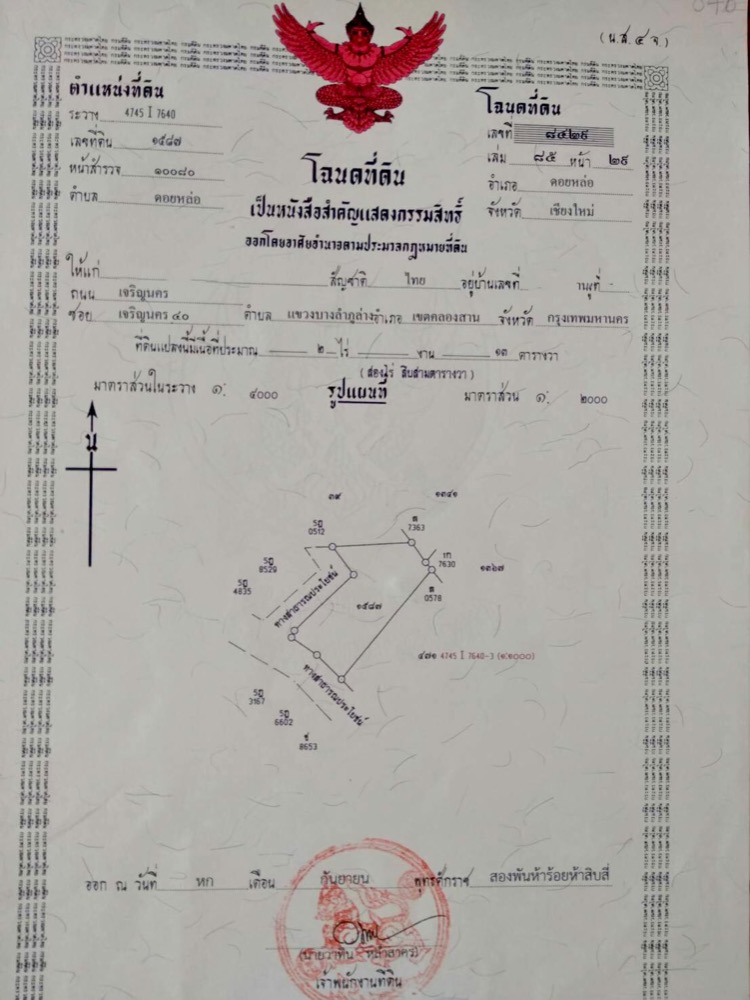 (น.ส.๔ จ.)
ตำแหน่งที่ดิน
ระวาง 4745 I 7640
เลขที่ดิน ๑๕๘๗
หน้าสำรวจ ๑๐๐๘๐
ตำบล ดอยหล่อ
โฉนดที่ดิน
เลขที่ ๘๔๒๙
เล่ม ๘๕ หน้า ๒๙
อำเภอ ดอยหล่อ
จังหวัด เชียงใหม่
โฉนดที่ดิน
เป็นหนังสือสำคัญแสดงกรรมสิทธิ์
ออกโดยอาศัยอำนาจตามประมวลกฎหมายที่ดิน
ให้แก่ สัญชาติ ไทย อยู่บ้านเลขที่ หมู่ที่ -
ถนน เจริญนคร
ซอย เจริญนคร ๔๐ ตำบล แขวงบางลำภูล่าง อำเภอ เขตคลองสาน จังหวัด กรุงเทพมหานคร
ที่ดินแปลงนี้มีเนื้อที่ประมาณ ๒ ไร่ งาน ๑๓ ตารางวา
(สองไร่ สิบสามตารางวา)
มาตราส่วนในระวาง ๑: ๔๐๐๐ รูปแผนที่ มาตราส่วน ๑: ๒๐๐๐
น
๓๙ ๑๓๔๑
5ฎ
0512
ส
7363
5ฎ
8529
5ฎ
4835
เก
7630
๑๓๖๗
ส
0578
ทางสาธารณประโยชน์
๑๕๘๗
๔๗๑ 4745 I 7640-3 (๑:๒๐๐๐)
ทางสาธารณประโยชน์
5ฎ
3167
5ฎ
6602
ช
8653
ออก ณ วันที่ หก เดือน กันยายน พุทธศักราช สองพันห้าร้อยห้าสิบสี่
เจ้าพนักงานที่ดิน